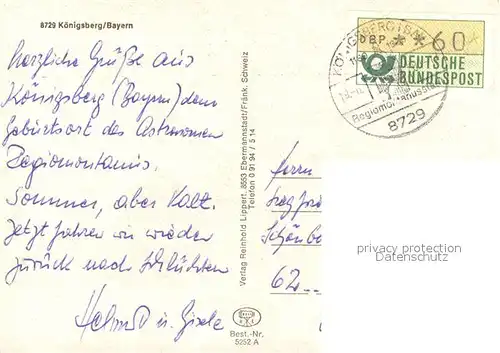 8729 Königsberg/Bayern
Herzliche Grüße aus
Königsberg (Bayern) dem
Geburtsort des Astronomen
Regiomontanus.
Sommer, aber kalt.
Jetzt fahren wir wieder
zurück nach Schlüchtern
Helmut u. Gisela
Verlag Reinhold Lippert, 8553 Ebermannstadt/Fränk. Schweiz
Telefon 0 91 94 / 5 14
Best.-Nr.
5252 A
DBP 60
DEUTSCHE
BUNDESPOST
KÖNIGSBERG I BAY
Regiomontanusstadt
8729
Herrn
62
privacy protection
Datenschutz